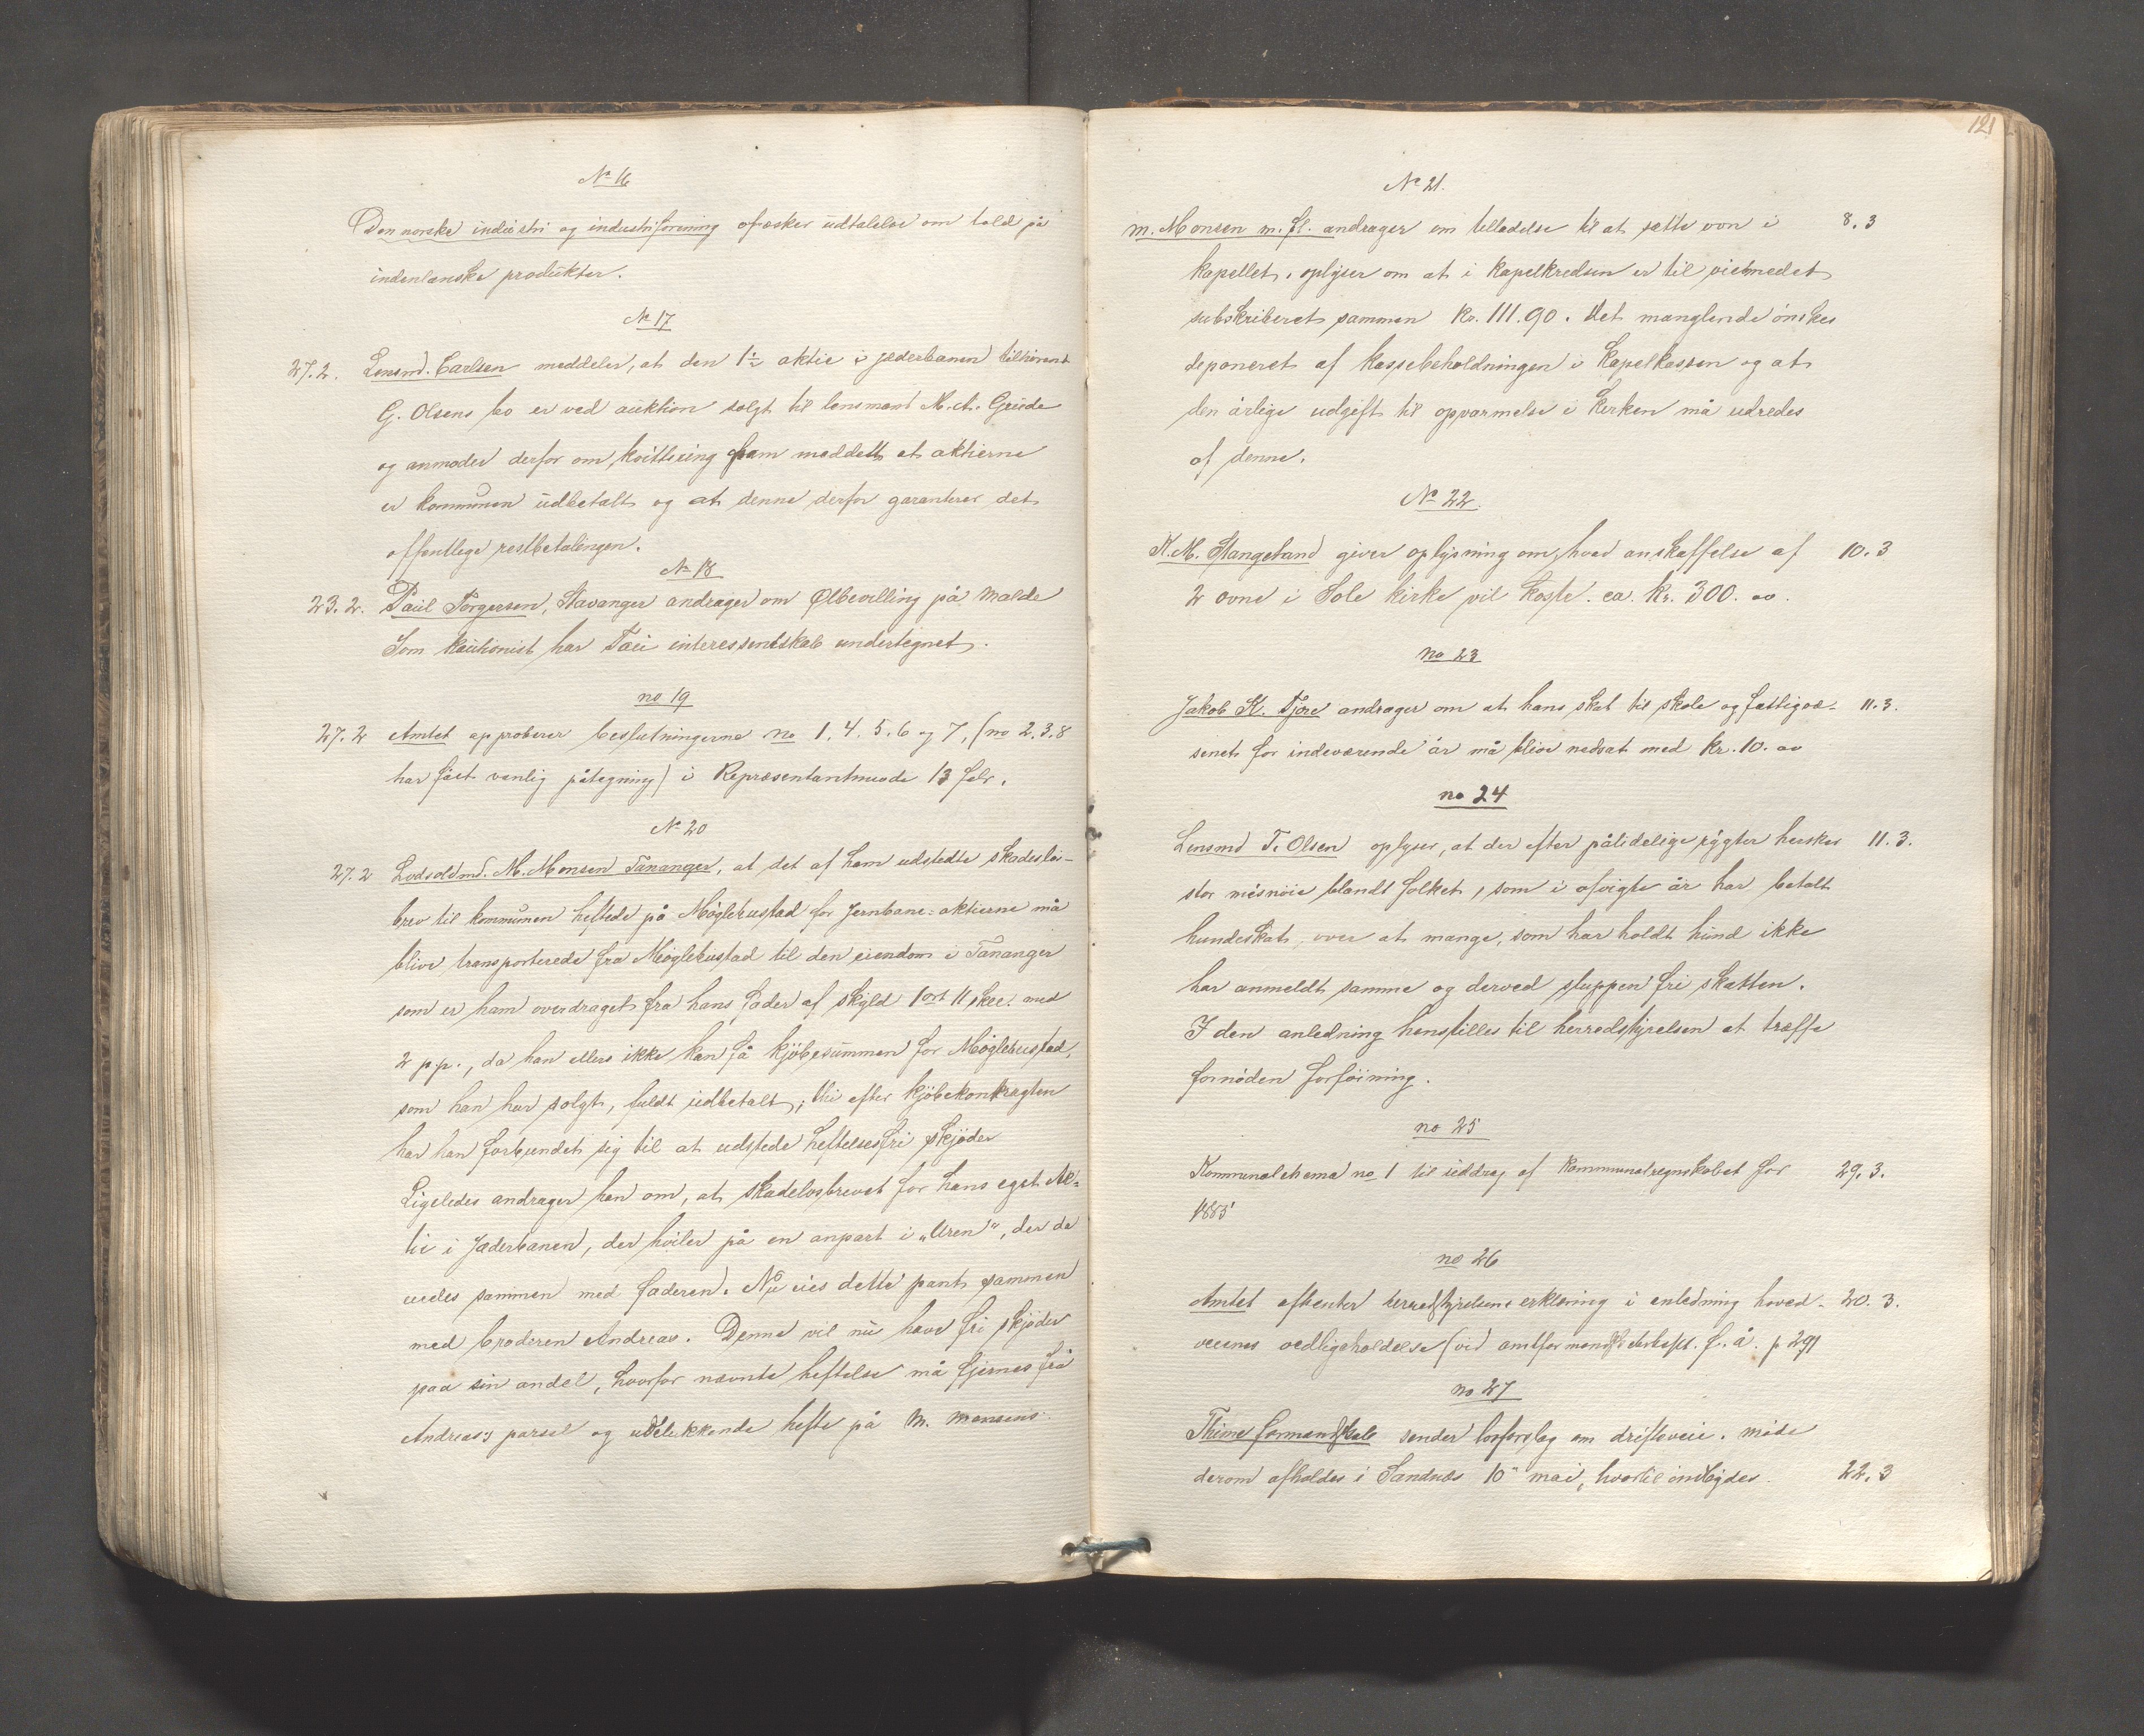 No 16
Den norske industri og industriforening afæsker udtalelse om told på
indenlanske produkter.
No 17
27.2. Lensmd. Carlsen meddeler, at den 1/2 aktie i jæderbanen tilhørend
G. Olsens bo er ved auktion solgt til lensmand M. A. Grude
og anmoder derfor om kvittering fram meddelt at aktierne
er kommunen udbetalt og at denne derfor garanterer det
offentlige restbetalingen.
No 18
23.2. Paul Torgersen, Stavanger andrager om Ølbevilling på Malde
Som kautionist har Tau interessentskab undertegnet.
no 19
27.2 Amtet approberer beslutningerne no 1. 4. 5. 6 og 7, (no 2. 3. 8
har fået vanlig påtegning) i Repræsentantmøde 13 febr.
No 20
27.2 Lodsoldmd. M. Monsen Tananger, at det af ham udstedte skadesløs-
brev til kommunen heftede på Møglebustad for Jernbane-aktierne må
blive transporterede fra Møglebustad til den eiendom i Tananger
som er ham overdraget fra hans fader af skyld 1 ort 11 skil. med
2 p.p., da han ellers ikke kan få kjøbesummen for Møglebustad,
som han har solgt, fuldt udbetalt; thi efter kjøbekontragten
har han forbundet sig til at udstede heftelsesfri skjøder
Ligeledes andrager han om, at skadeløsbrevet for hans eget Ak-
tie i Jæderbanen, der hviler på en anpart i "Uren", der da
eiedes sammen med faderen. Nu eies dette pant sammen
med broderen Andreas. Denne vil nu have fri skjøder
paa sin andel, hvorfor nævnte heftelse må fjernes frå
Andreas's parsel og udelukkende hefte på M. Monsens.
121
No 21.
M. Monsen m. fl. andrager om tilladelse til at sætte ovn i 8.3
kapellet. oplyser om at i kapelkredsen er til øiemedet
subskriberet sammen Kr. 111.90. Det manglende ønskes
deponeret af kassebeholdningen i kapelkassen og at
den årlige udgift til opvarmelse i Kirken må udredes
af denne.
No 22
K. M. Stangeland giver oplysning om, hvad anskaffelse af 10.3
2 ovne i Sole kirke vil koste. ca. kr. 300. oo.
no 23
Jakob K. Tjore andrager om at hans skat til skole og fattigvæ- 11.3.
senet for indeværende år må blive nedsat med kr. 10. oo
no 24
Lensmd T. Olsen oplyser, at der efter pålidelige rygter hersker 11.3.
stor misnøie blandt folket, som i afvigte år har betalt
hundeskat, over at mange, som har holdt hund ikke
har anmeldt samme og derved sluppen fri skatten.
I den anledning henstilles til herredstyrelsen at træffe
fornøden forføining.
no 25
Kommunalskema no 1 til uddrag af kommunalregnskabet for 29.3.
1885
no 26
Amtet afventer herredstyrelsens erklæring i anledning hoved- 20.3.
veienes vedligeholdelse (vid amtformandsk f. å. p 291
no 27
Thime formandskab sender lovforslag om drifteveie. møde
derom afholdes i Sandnes 10de mai, hvortil indbydes. 22.3